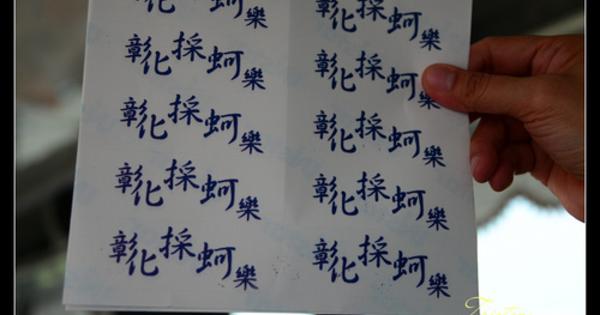 彰化採蚵樂
彰化採蚵樂
彰化採蚵樂
彰化採蚵樂
彰化採蚵樂
彰化採蚵樂
彰化採蚵樂
彰化採蚵樂
彰化採蚵樂
彰化採蚵樂